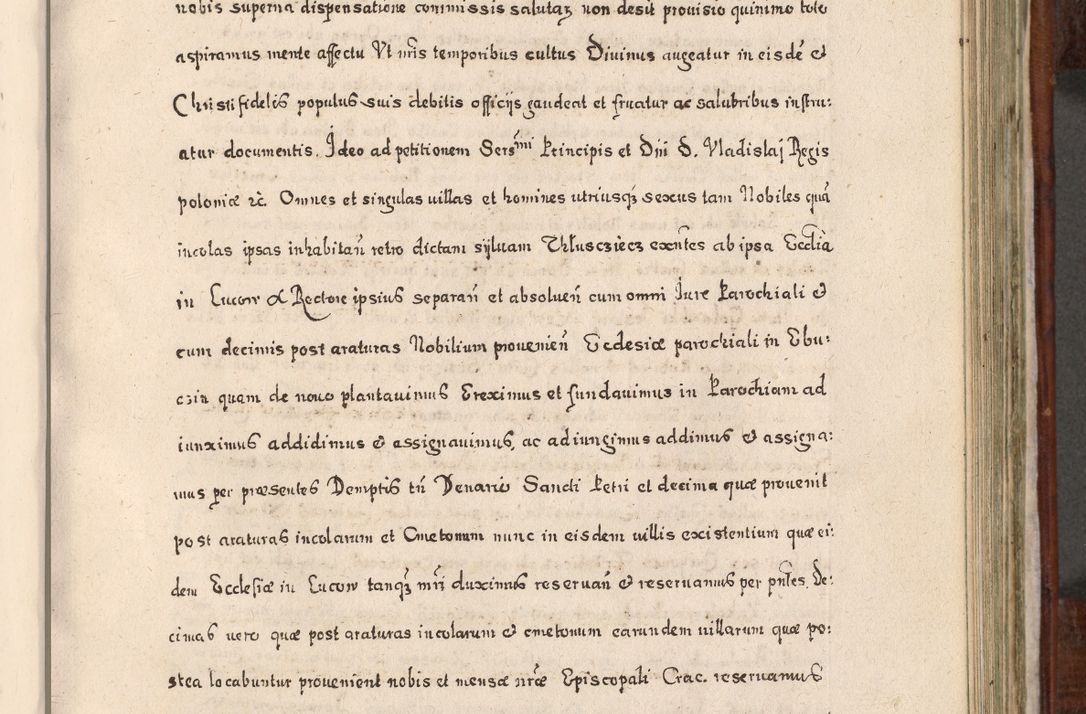 nobis superna dispensatione commissis salutaz non desit prouisio quinimo toto
aspiramus mente affectu Vt nr̃is temporibus cultus Diuinus augeatur in eisdẽ et
Christifidelis populus suis debitis officijs gaudeat et fruatur ac salubribus instru:
atur documentis. Ideo ad petitionem Serẽnissmi Principis et Dñi D. Vladislaj Regis
poloniæ rc̃. Omnes et singulas uillas et homines utriusqz sexus tam Nobiles quã
incolas ipsas inhabitañ retro dictam syluam Thlusczicz exñtes ab ipsa Ecclĩa
in Lucow et Rectore ipsius separañ et absolueñ cum omni Iure Parochiali et
cum decimis post araturas Nobilium proueniẽn Ecclesiæ parochiali in Ebu:
czin quam de nouo plantauimus Ereximus et fundauimus in Parochiam ad
iunximus addidimus et assignauimus, ac adiungimus addimus et assigna:
mus per præsentes Demptis tñ Denario Sancti Petri et decima quæ prouenit
post araturas incolarum et Cmetonum nunc in eisdem uillis existentium quæ ei:
dem Ecclesiæ in Lucow tanqz mr̃i duximus reseruañ et reseruamus per pñtes. De:
cimas uero quæ post araturas incolarum et cmetonum earundem uillarum quæ po:
stea locabuntur prouenient nobis et mensæ nr̃æ Episcopali Crac. reseruamus